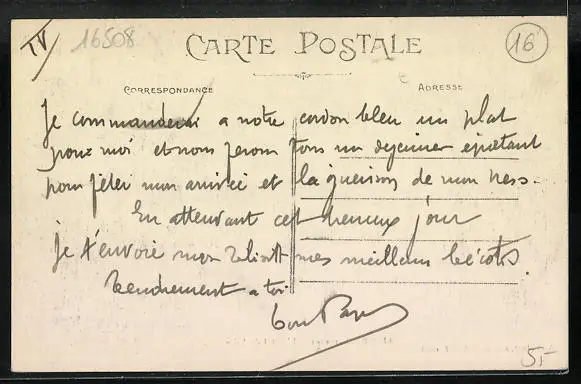 TV
16508
CARTE POSTALE
16
CORRESPONDANCE
ADRESSE
Je commanderai a notre cordon bleu un plat
pour moi et nous ferons tous un dejeuner épatant
pour fêter mon arrivée et la guerison de mon
En attendant cet heureux jour
Je t'envoie mes meilleurs bécots.
Tendrement a toi
5,-